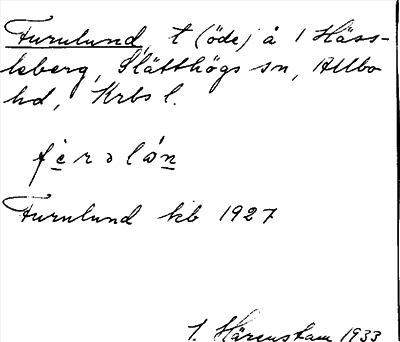 Furulund, t (öde) å 1 Häss-
leberg, Slätthögs sn, Allbo
hd, Krbs l.
fèrolón
Furulund kb 1927
1. Härenstam 1933